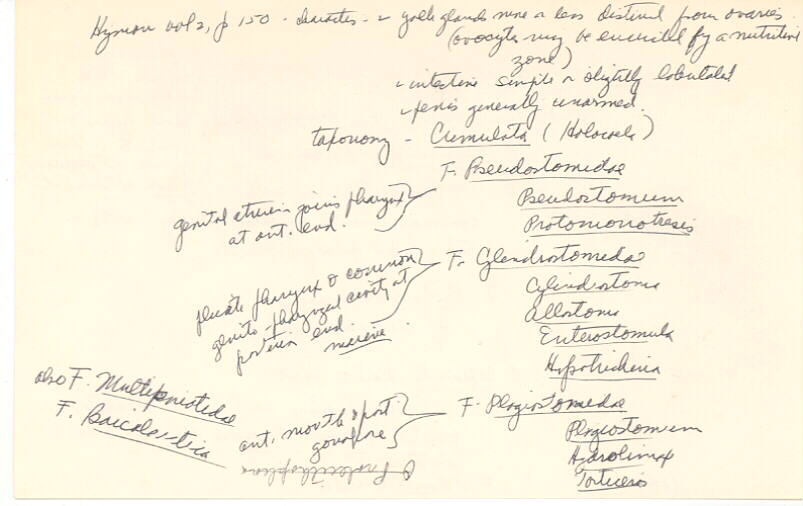 Hyman vol 2, p 150 - characters - yolk glands more or less distinct from ovaries
(ovocytes may be encircled by a nutritive
zone)
- intestine simple or slightly lobulated
- penis generally unarmed.
taxonomy - Cumulata (Holocoela)
F. Pseudostomidae
Pseudostomum
Protomonotresis
genital atrium joins pharynx
at ant. end.
F. Cylindrostomidae
Cylindrostoma
Allostoma
Enterostomula
Hypotrichina
plicate pharynx & common
genito-pharyngeal cavity at
posterior end.
marine
also F. Multipeniatidae
F. Baicalarctia
F. Plagiostomidae
Plagiostomum
Hydrolimax
Vorticeros
ant. mouth & post.
gonopore
O Prolecithophora